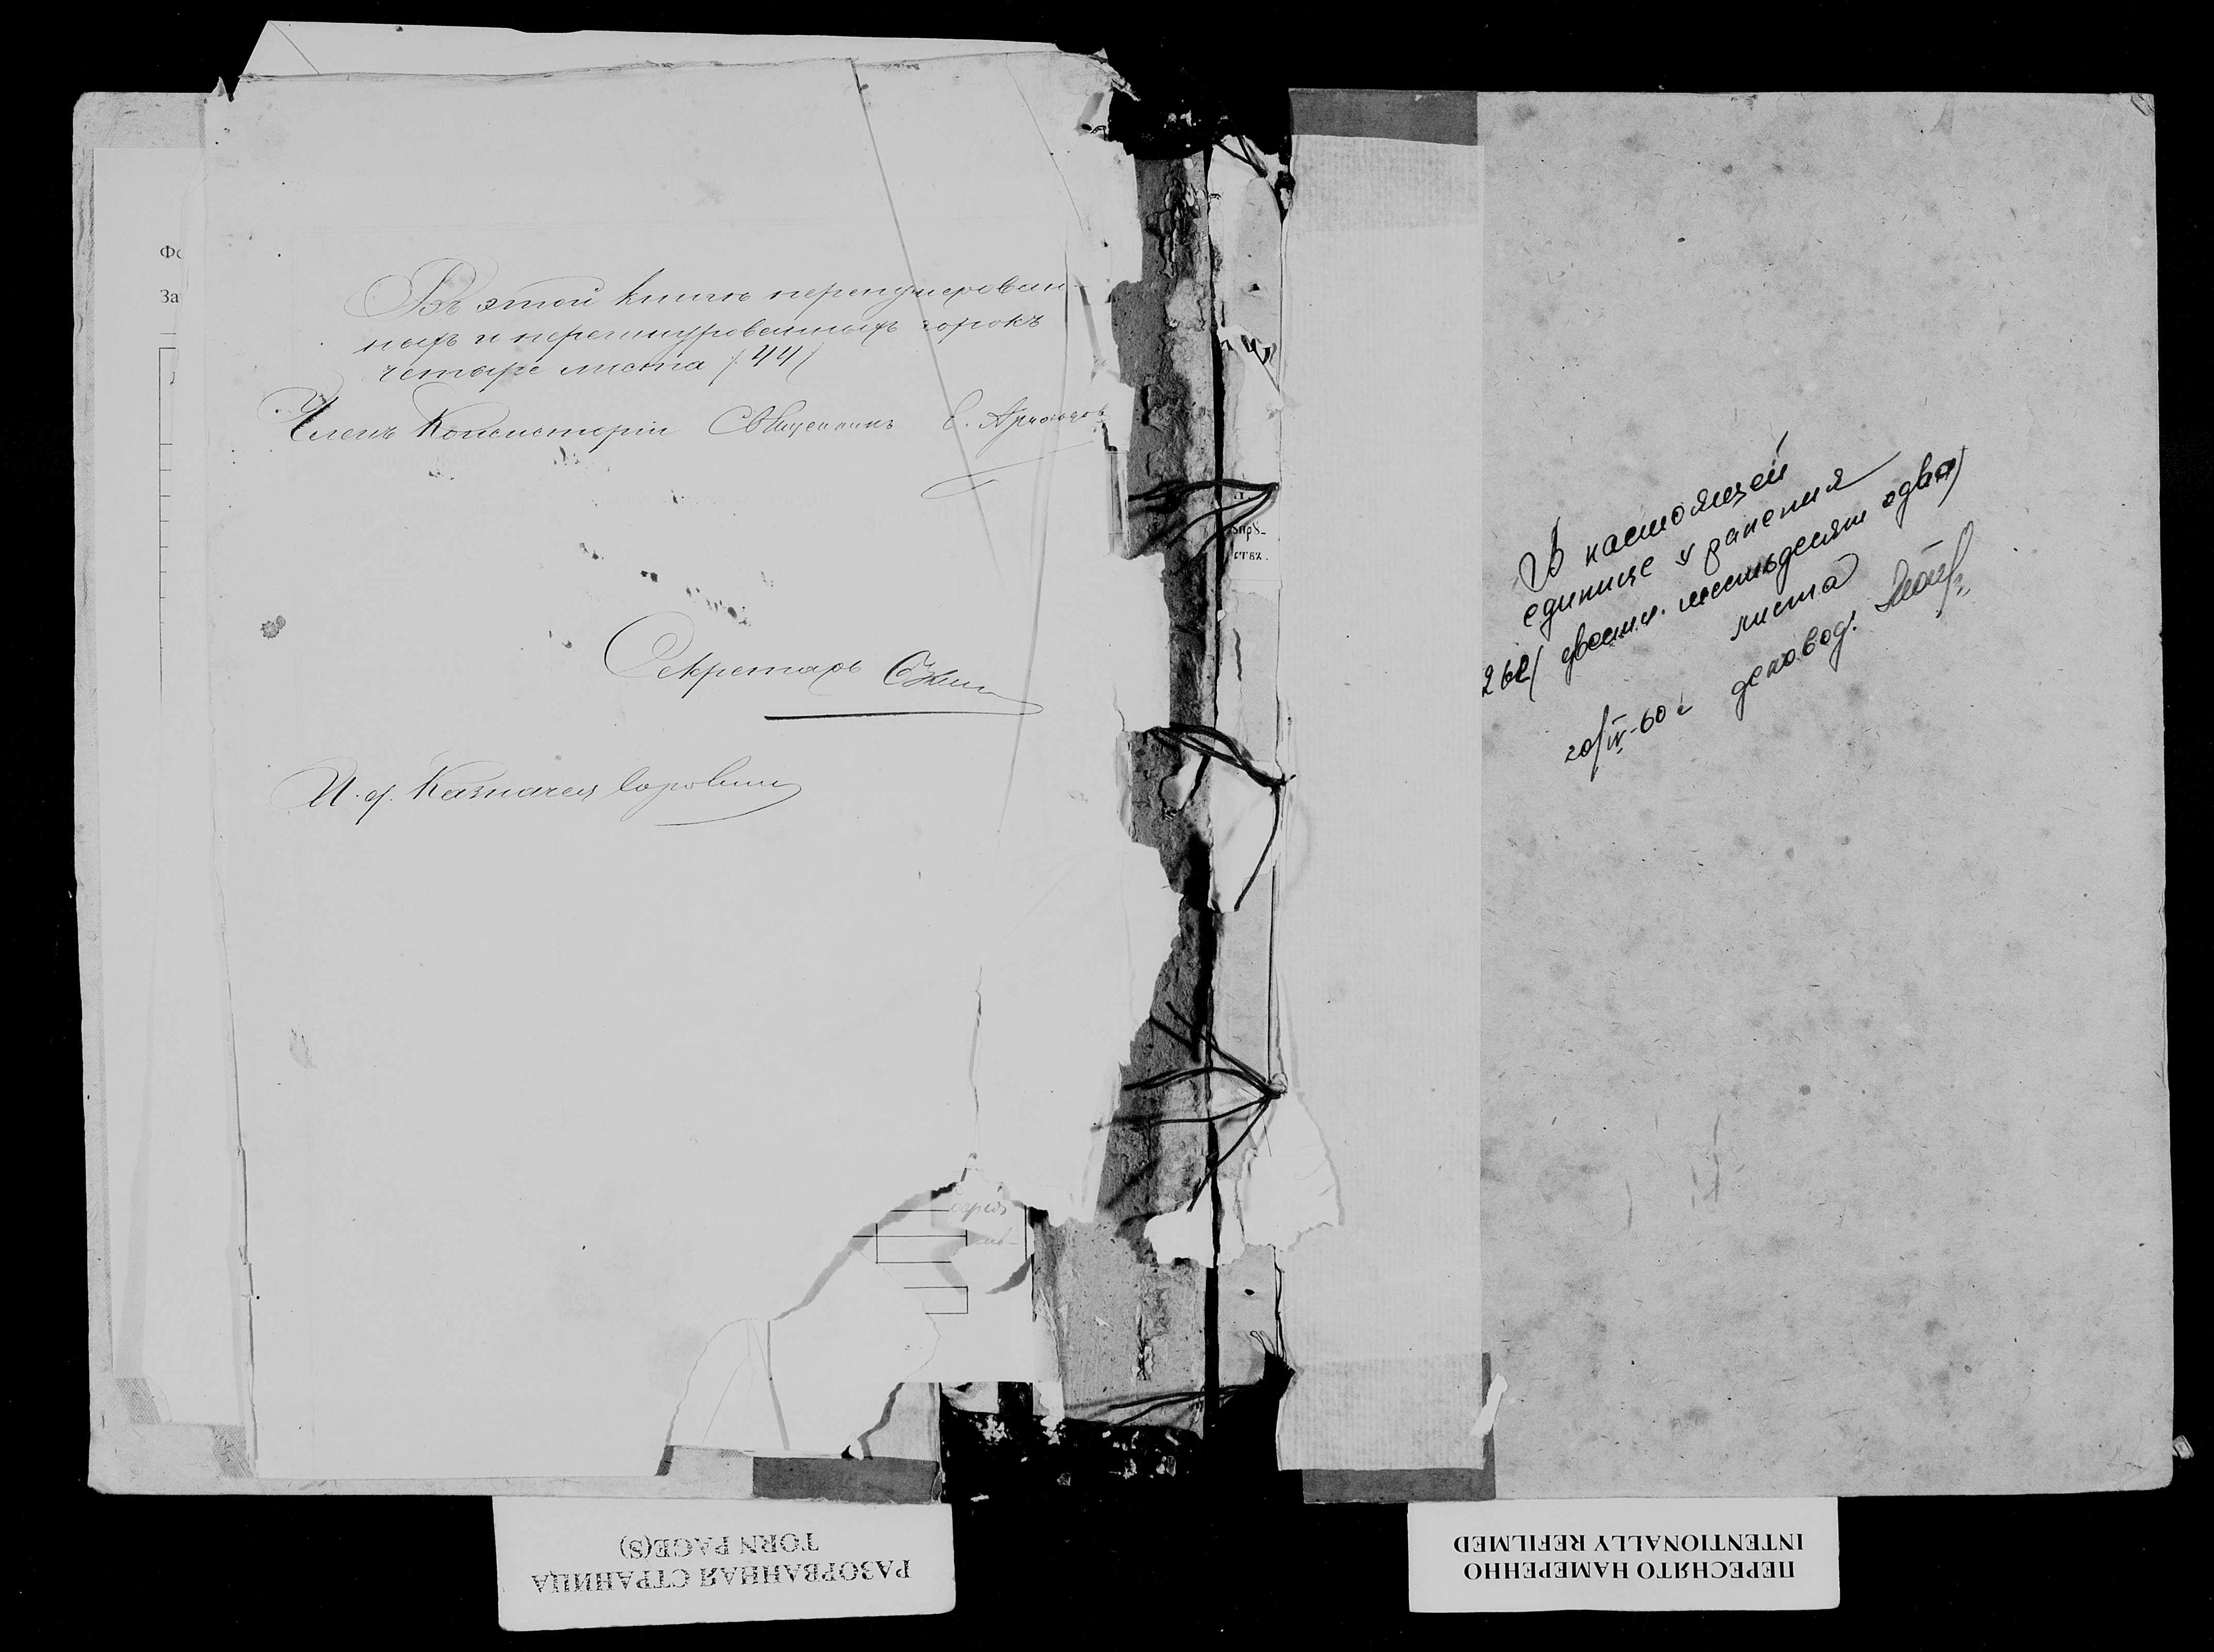 Фо
За
Въ этой книгѣ перенумерован-
ныхъ и перешнурованныхъ сорокъ
четыре листа /44/
Членъ Консисторіи Священникъ
Секретарь
И. д. Казначея
серія
впрȢ-
ств.
В настоящей
единице хранения
262/ двести шестьдесят два)
листа
20/IV-60 г. деловод.
РАЗОРВАННАЯ СТРАНИЦА
TORN PAGE(S)
ПЕРЕСНЯТО НАМЕРЕННО
INTENTIONALLY REFILMED